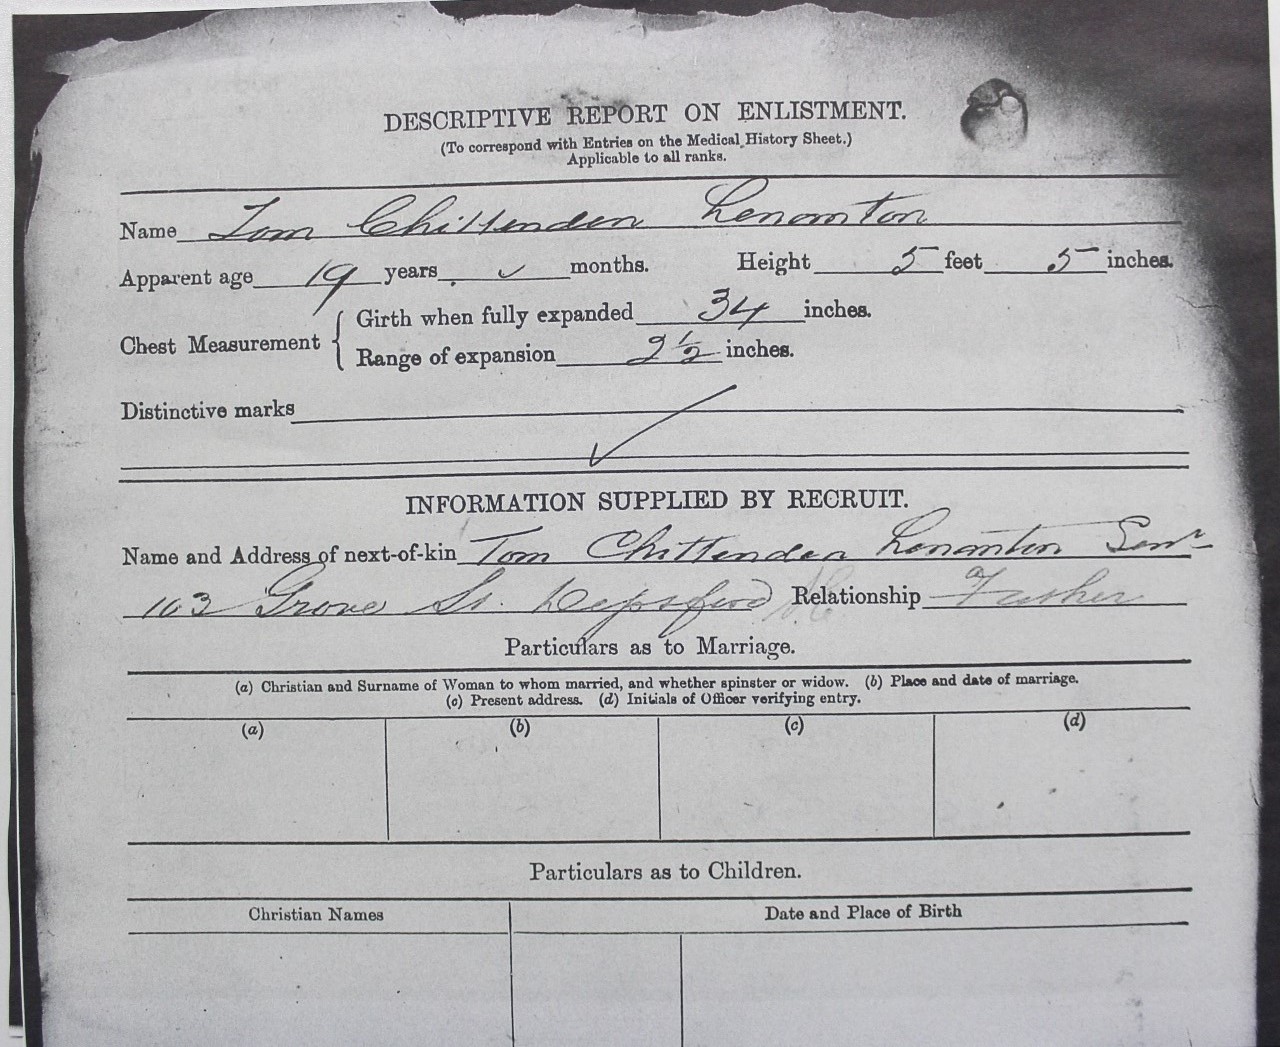 DESCRIPTIVE REPORT ON ENLISTMENT.
(To correspond with Entries on the Medical History Sheet.)
Applicable to all ranks.
Name Tom Chittenden Lenanton
Apparent age 19 years ✓ months. Height 5 feet 5 inches.
Chest Measurement { Girth when fully expanded 34 inches.
Range of expansion 2½ inches.
Distinctive marks ✓
INFORMATION SUPPLIED BY RECRUIT.
Name and Address of next-of-kin Tom Chittenden Lenanton Senr
103 Grove St. Deptford Relationship Father
Particulars as to Marriage.
(a) Christian and Surname of Woman to whom married, and whether spinster or widow. (b) Place and date of marriage.
(c) Present address. (d) Initials of Officer verifying entry.
(a) (b) (c) (d)
Particulars as to Children.
Christian Names Date and Place of Birth